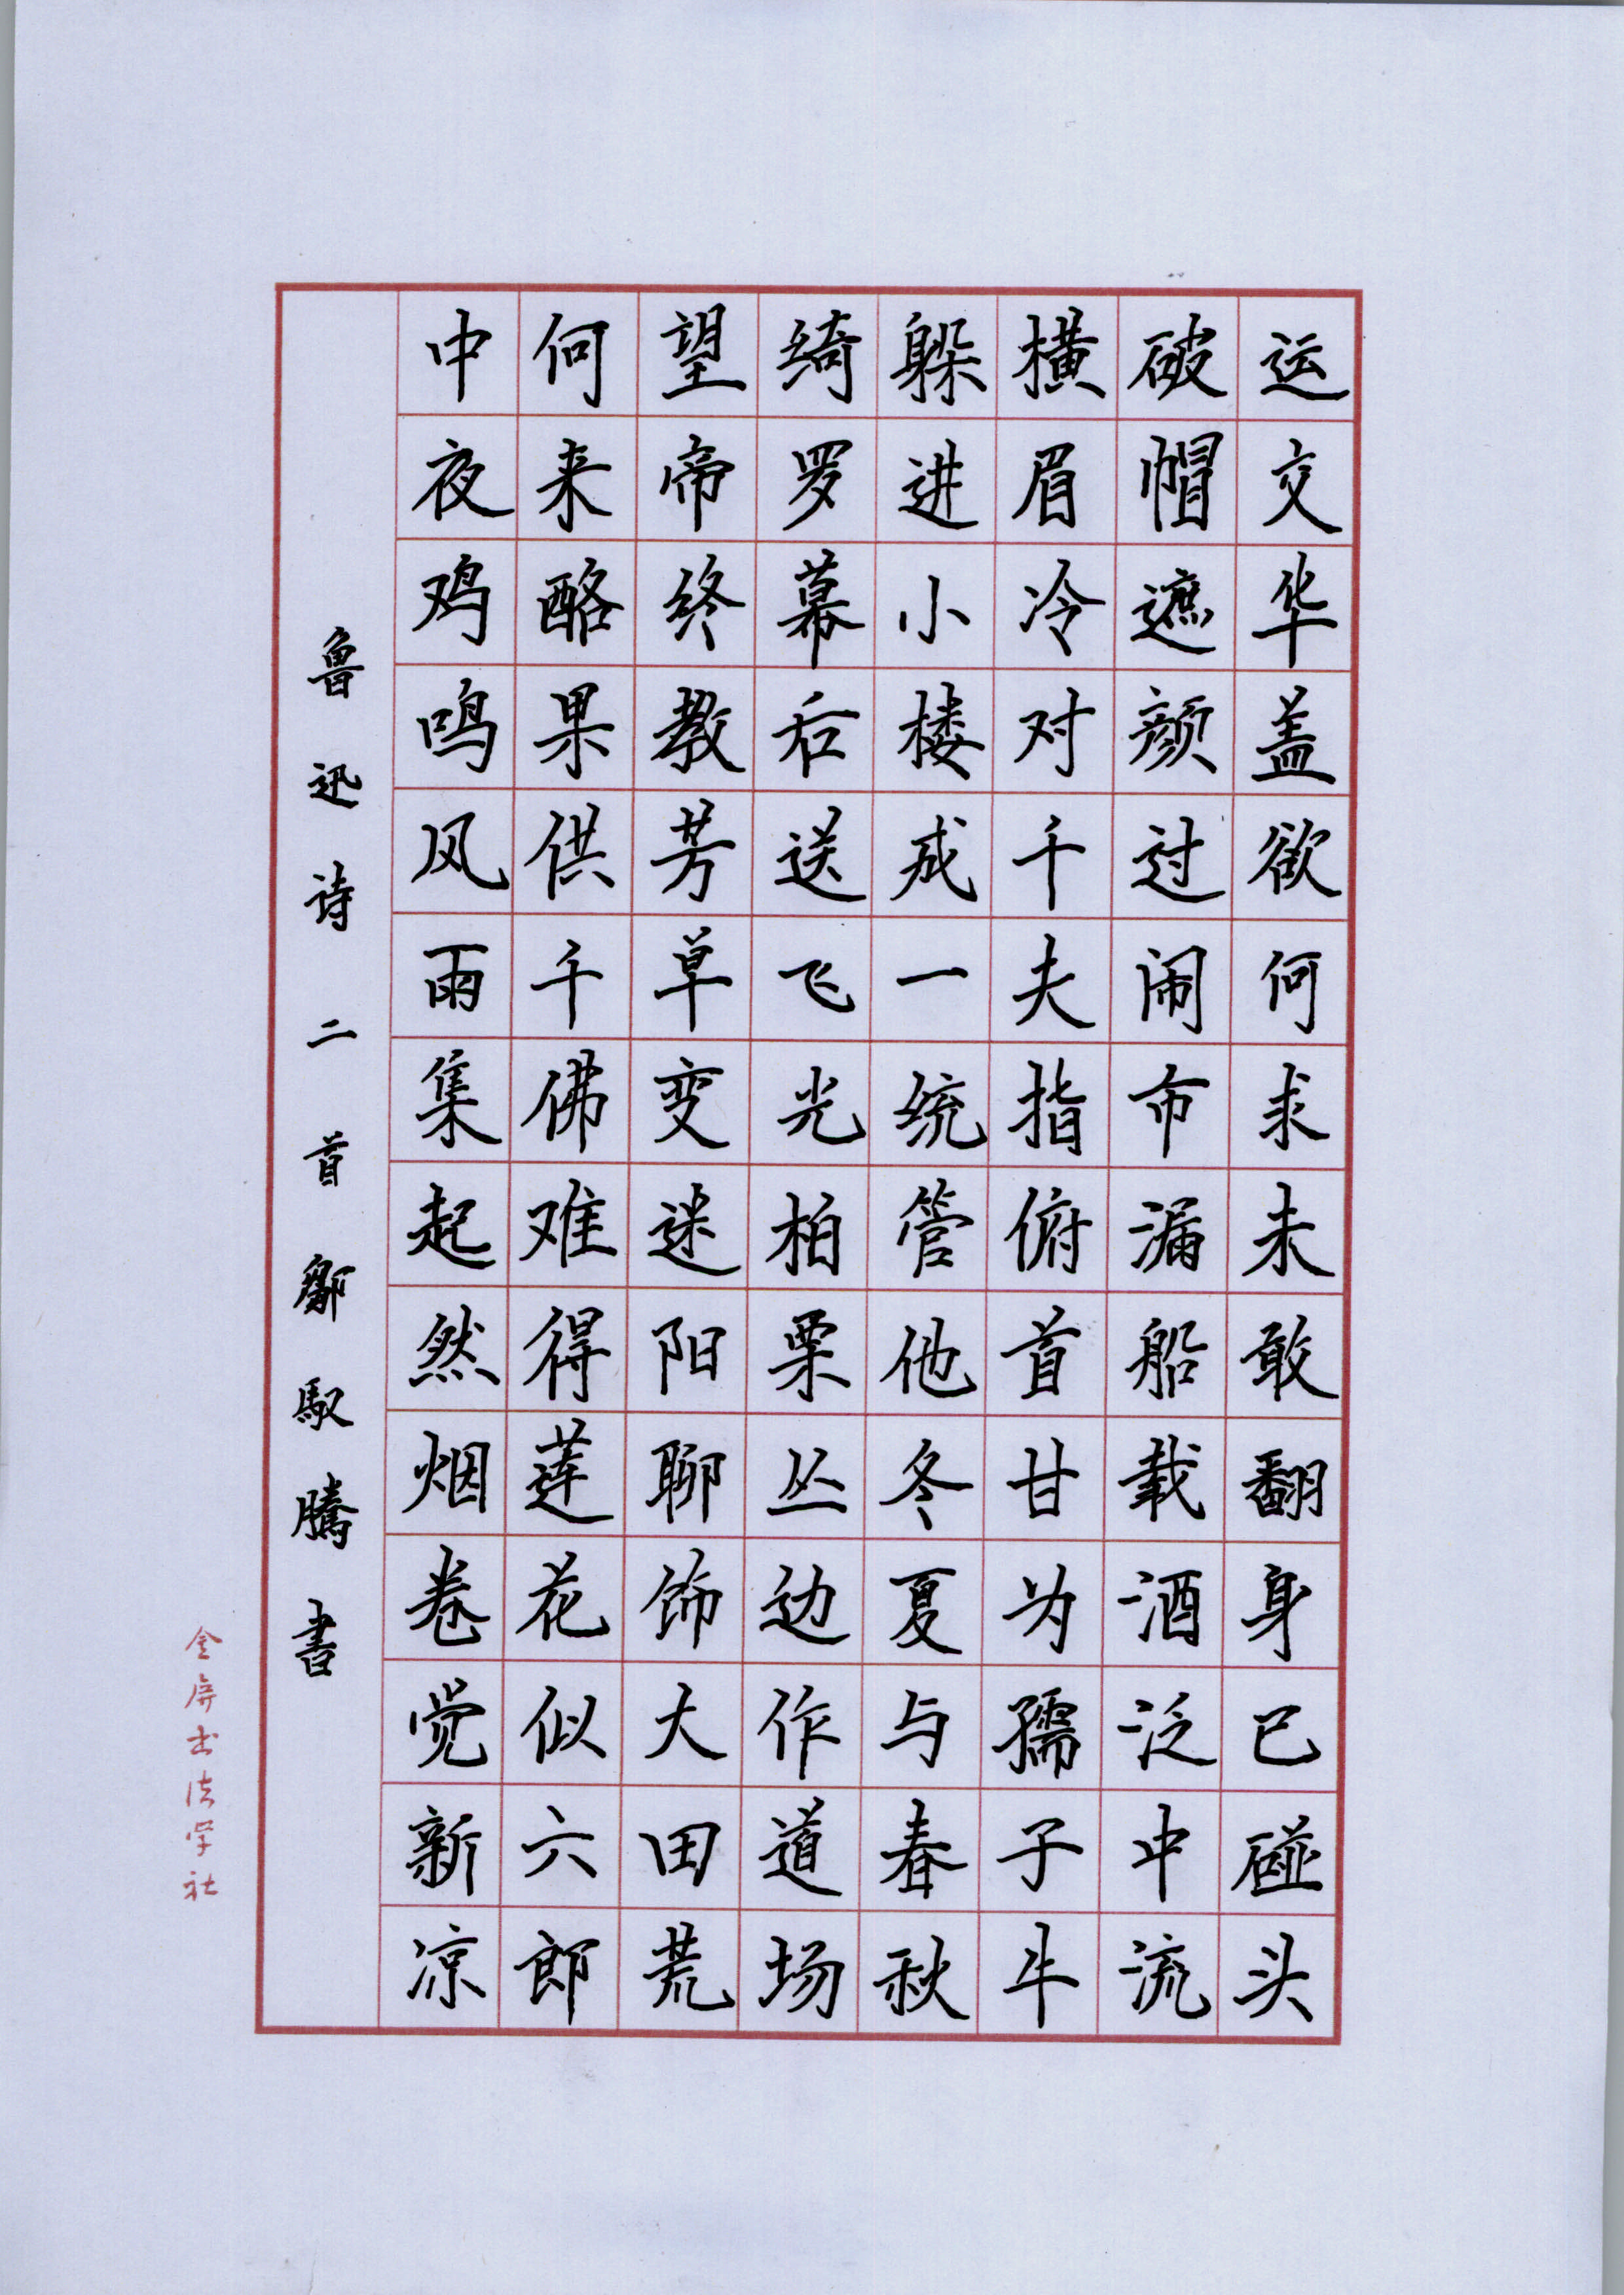 运交华盖欲何求未敢翻身已碰头
破帽遮颜过闹市漏船载酒泛中流
横眉冷对千夫指俯首甘为孺子牛
躲进小楼成一统管他冬夏与春秋
绮罗幕后送飞光柏栗丛边作道场
望帝终教芳草变迷阳聊饰大田荒
何来酪果供千佛难得莲花似六郎
中夜鸡鸣风雨集起然烟卷觉新凉
鲁迅诗二首鄒馭騰書
金屏书法学社